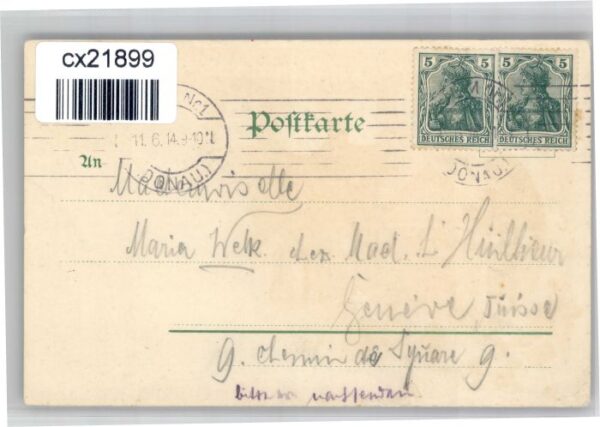 cx21899
No1
11.6.14.9-10V.
(DONAU)
Postkarte
5 5 5 5
DEUTSCHES REICH DEUTSCHES REICH
DONAU
An
Mademoiselle
Maria Welk chez Mad. L'Huillier
Genève, Suisse
9. chemin de Square 9.
bitte nachsenden